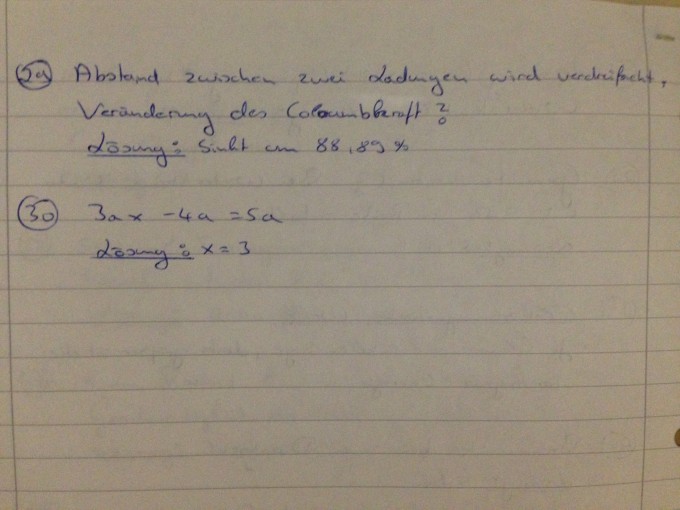 29 Abstand zwischen zwei Ladungen wird verdreifacht,
Veränderung des Coloumbkraft?
Lösung: Sinkt um 88,89%
30 3ax - 4a = 5a
Lösung: x = 3